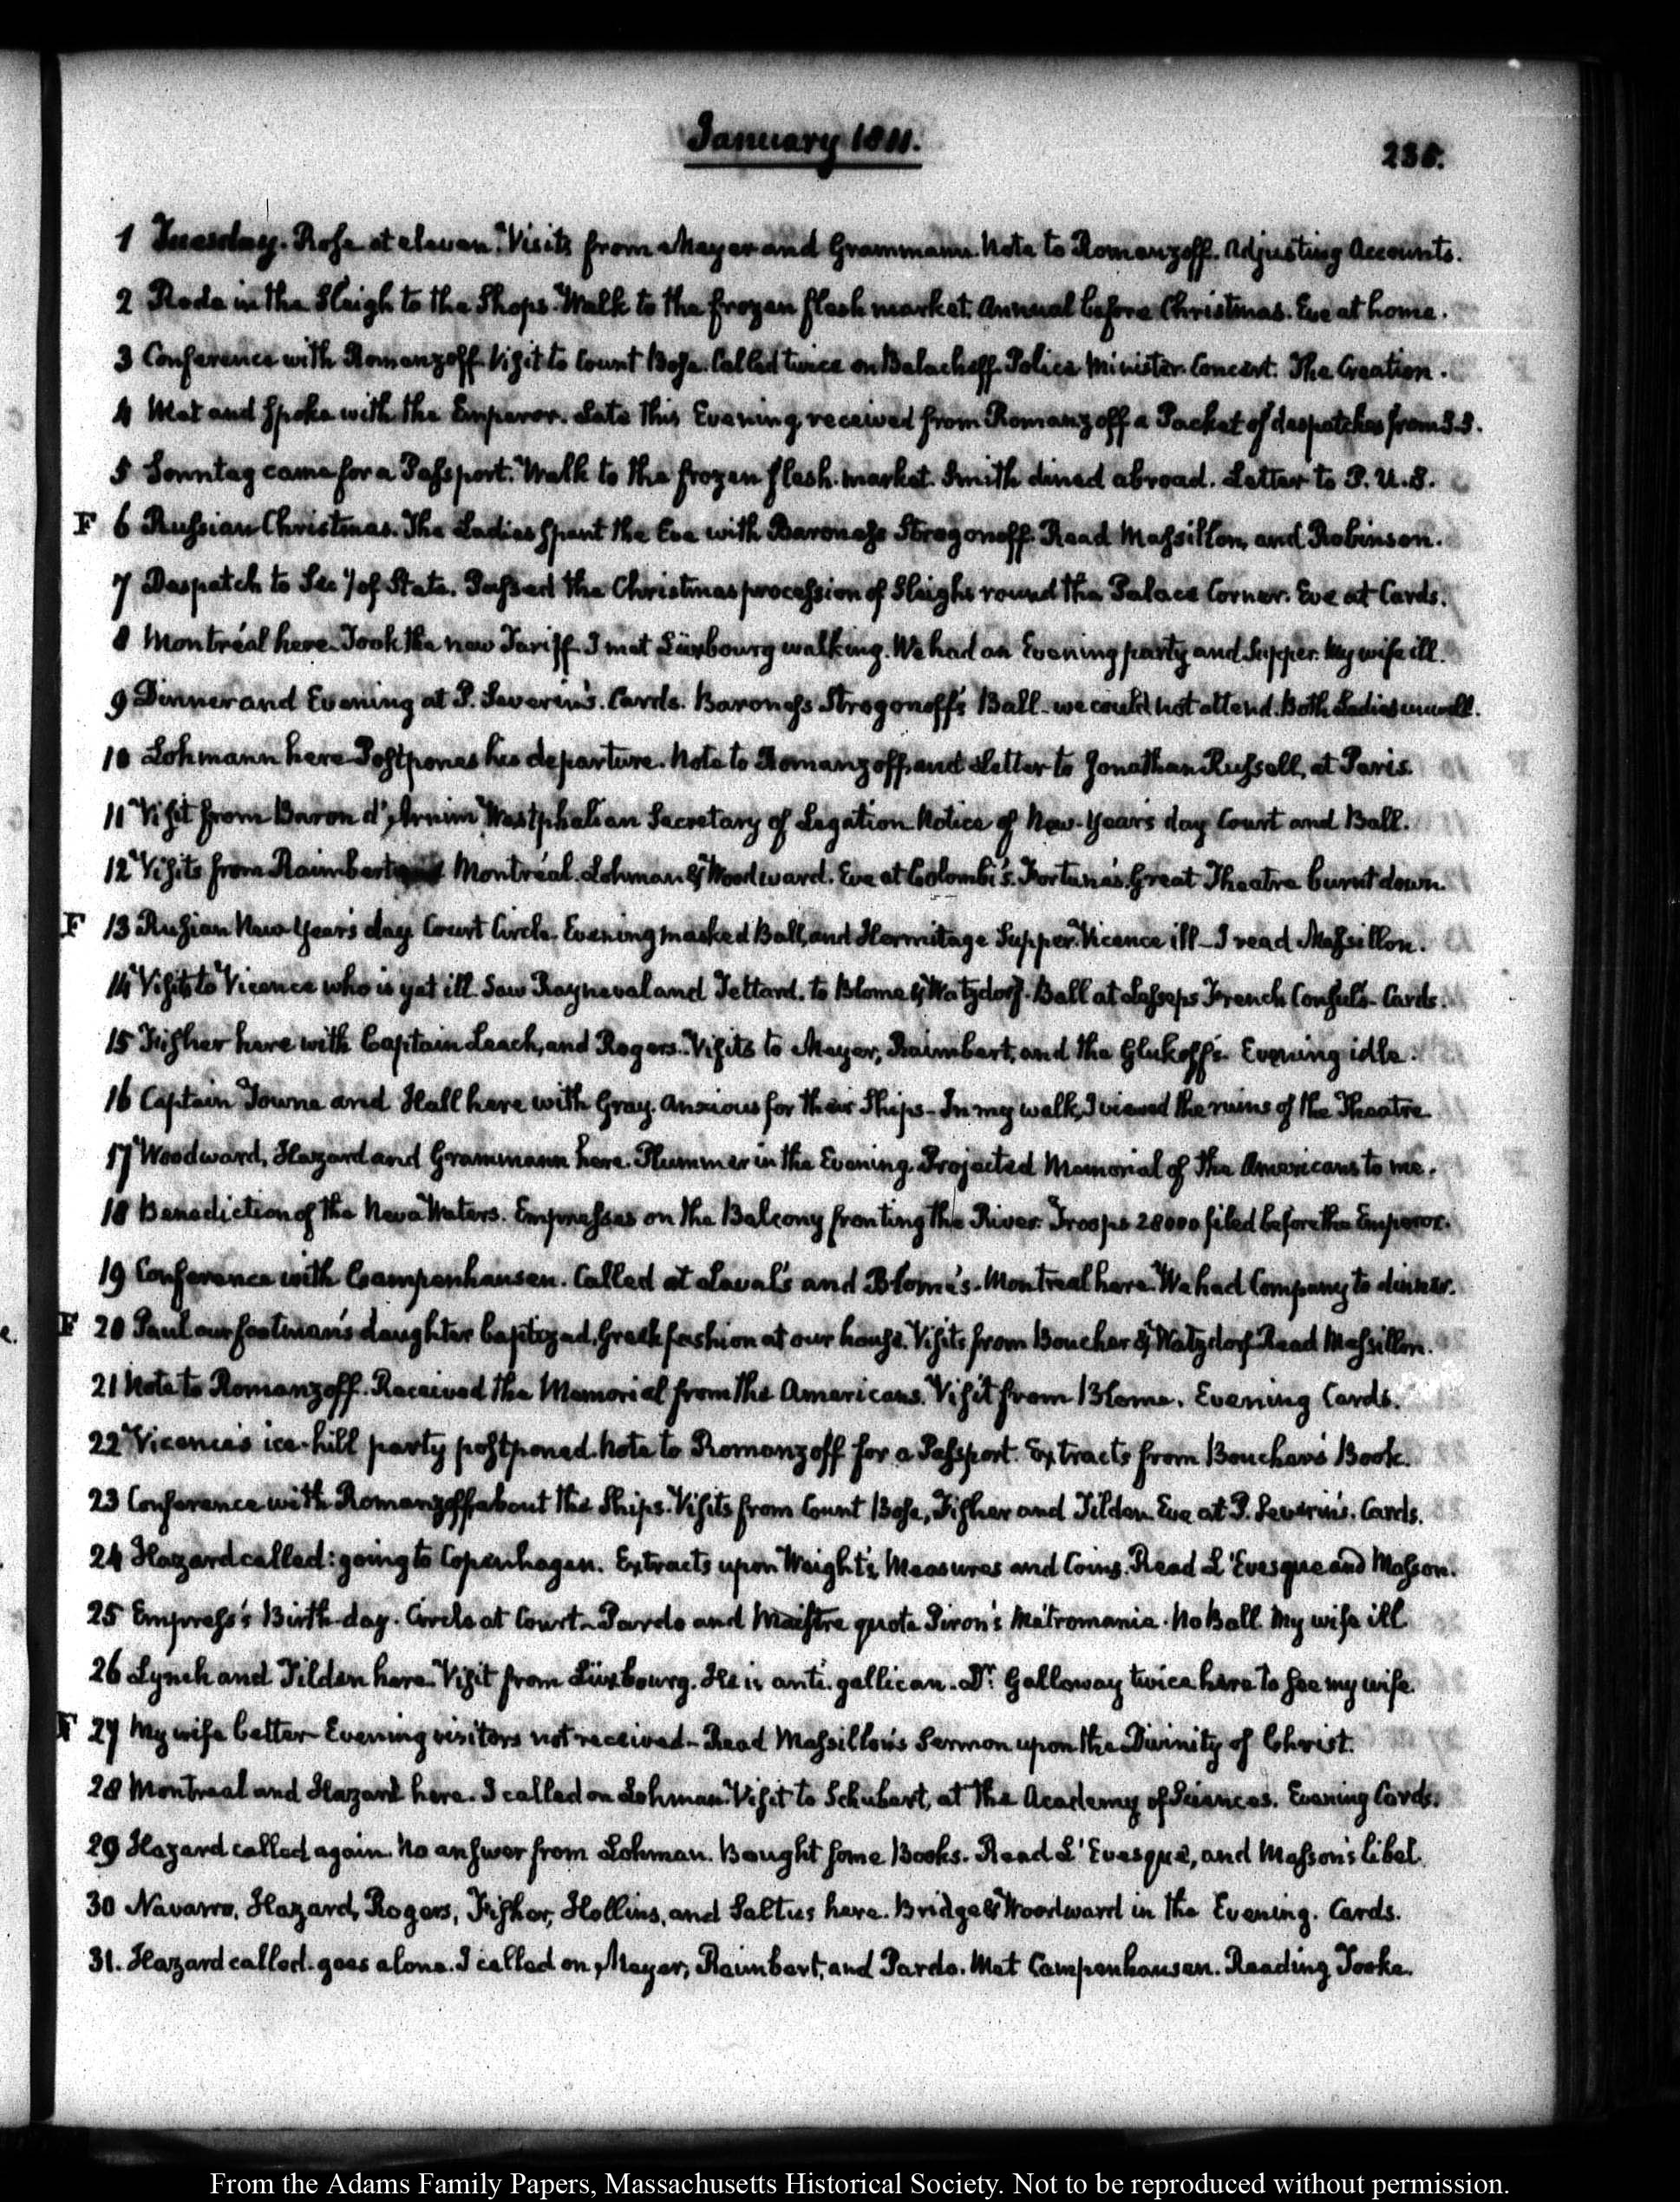 January 1811.
235.
1 Tuesday. Rose at eleven. Visits from Meyer and Grammann. Note to Romanzoff. Adjusting Accounts.
2 Rode in the Sleigh to the Shops. Walk to the frozen flesh market. Annual before Christmas. Eve at home.
3 Conference with Romanzoff. Visit to Count Bose. Called twice on Balacheff. Police Minister. Concert. The Creation.
4 Met and spoke with the Emperor. Late this Evening, received from Romanzoff a Packet of despatches from
5 Sonntag came for a Passport. Walk to the frozen flesh market. Smith dined abroad. Letter to P. U. S.
F 6 Russian Christmas. The Ladies spent the Eve with Baroness Strogonoff. Read Massillon, and Robinson.
7 Despatch to Sec.y of State. Passed the Christmas procession of Sleighs round the Palace Corner. Eve at Cards.
8 Montréal here. Took the new Tariff. I met Lüxbourg walking. We had an Evening party and Supper. My wife ill.
9 Dinner and Evening at P. Severin's. Cards. Baroness Strogonoff's Ball. we could not attend. Both Ladies unwell.
10 Lohmann here. Postpones his departure. Note to Romanzoff, and Letter to Jonathan Russell, at Paris.
11 Visit from Baron d'Arnim Westphalian Secretary of Legation. Notice of New-Years day Court and Ball.
12 Visits from Raimbert Montréal. Lohman & Woodward. Eve at Colombi's. Fortuna's. Great Theatre burnt down.
F 13 Russian New-Year's day. Court Circle. Evening masked Ball, and Hermitage Supper. Vicence ill—I read Massillon.
14 Visits to Vicence who is yet ill. Saw Rayneval and Tettard. to Blome & Watzdorf. Ball at Lesseps French Consul's. Cards.
15 Fisher here with Captain Leach, and Rogers. Visits to Meyer, Raimbert, and the Glukoff's. Evening idle.
16 Captain Towne and Hall here with Gray. Anxious for their Ships—In my walk, I viewed the ruins of the Theatre.
17 Woodward, Hazard and Grammann here. Plummer in the Evening. Projected Memorial of the Americans to me.
18 Benediction of the Neva Waters. Empresses on the Balcony fronting the River. Troops 28000 filed before the Emperor.
19 Conference with Campenhausen. Called at Laval's and Blome's. Montreal here. We had Company to dinner.
F 20 Paul our footman's daughter baptized, Greek fashion at our house. Visits from Boucher & Watzdorf. Read Massillon.
21 Note to Romanzoff. Received the Memorial from the Americans. Visit from Blome. Evening Cards.
22 Vicence's ice-hill party postponed. Note to Romanzoff for a Passport. Extracts from Boucher's Book.
23 Conference with Romanzoff about the Ships. Visits from Count Bose, Fisher and Tilden. Eve at P. Severin's. Cards.
24 Hazard called: going to Copenhagen. Extracts upon Weights, Measures and Coins. Read L'Evesque and Masson.
25 Empress's Birth-day. Circle at Court—Pardo and Maistre quote Piron's Métromanie. No Ball. My wife ill
26 Lynch and Tilden here. Visit from Lüxbourg. He is anti-gallican. Dr. Galloway twice here to see my wife.
F 27 My wife better—Evening visitors not received—Read Massillon's Sermon upon the Divinity of Christ.
28 Montreal and Hazard here. I called on Lohman. Visit to Schubert, at the Academy of Sciences. Evening Cards.
29 Hazard called again. No answer from Lohman. Bought some Books. Read L'Evesque, and Masson's libel.
30 Navarro, Hazard, Rogers, Fisher, Hollins, and Saltus here. Bridge & Woodward in the Evening. Cards.
31. Hazard called. goes alone. I called on Meyer, Raimbert, and Pardo. Met Campenhausen. Reading Tooke.
From the Adams Family Papers, Massachusetts Historical Society. Not to be reproduced without permission.